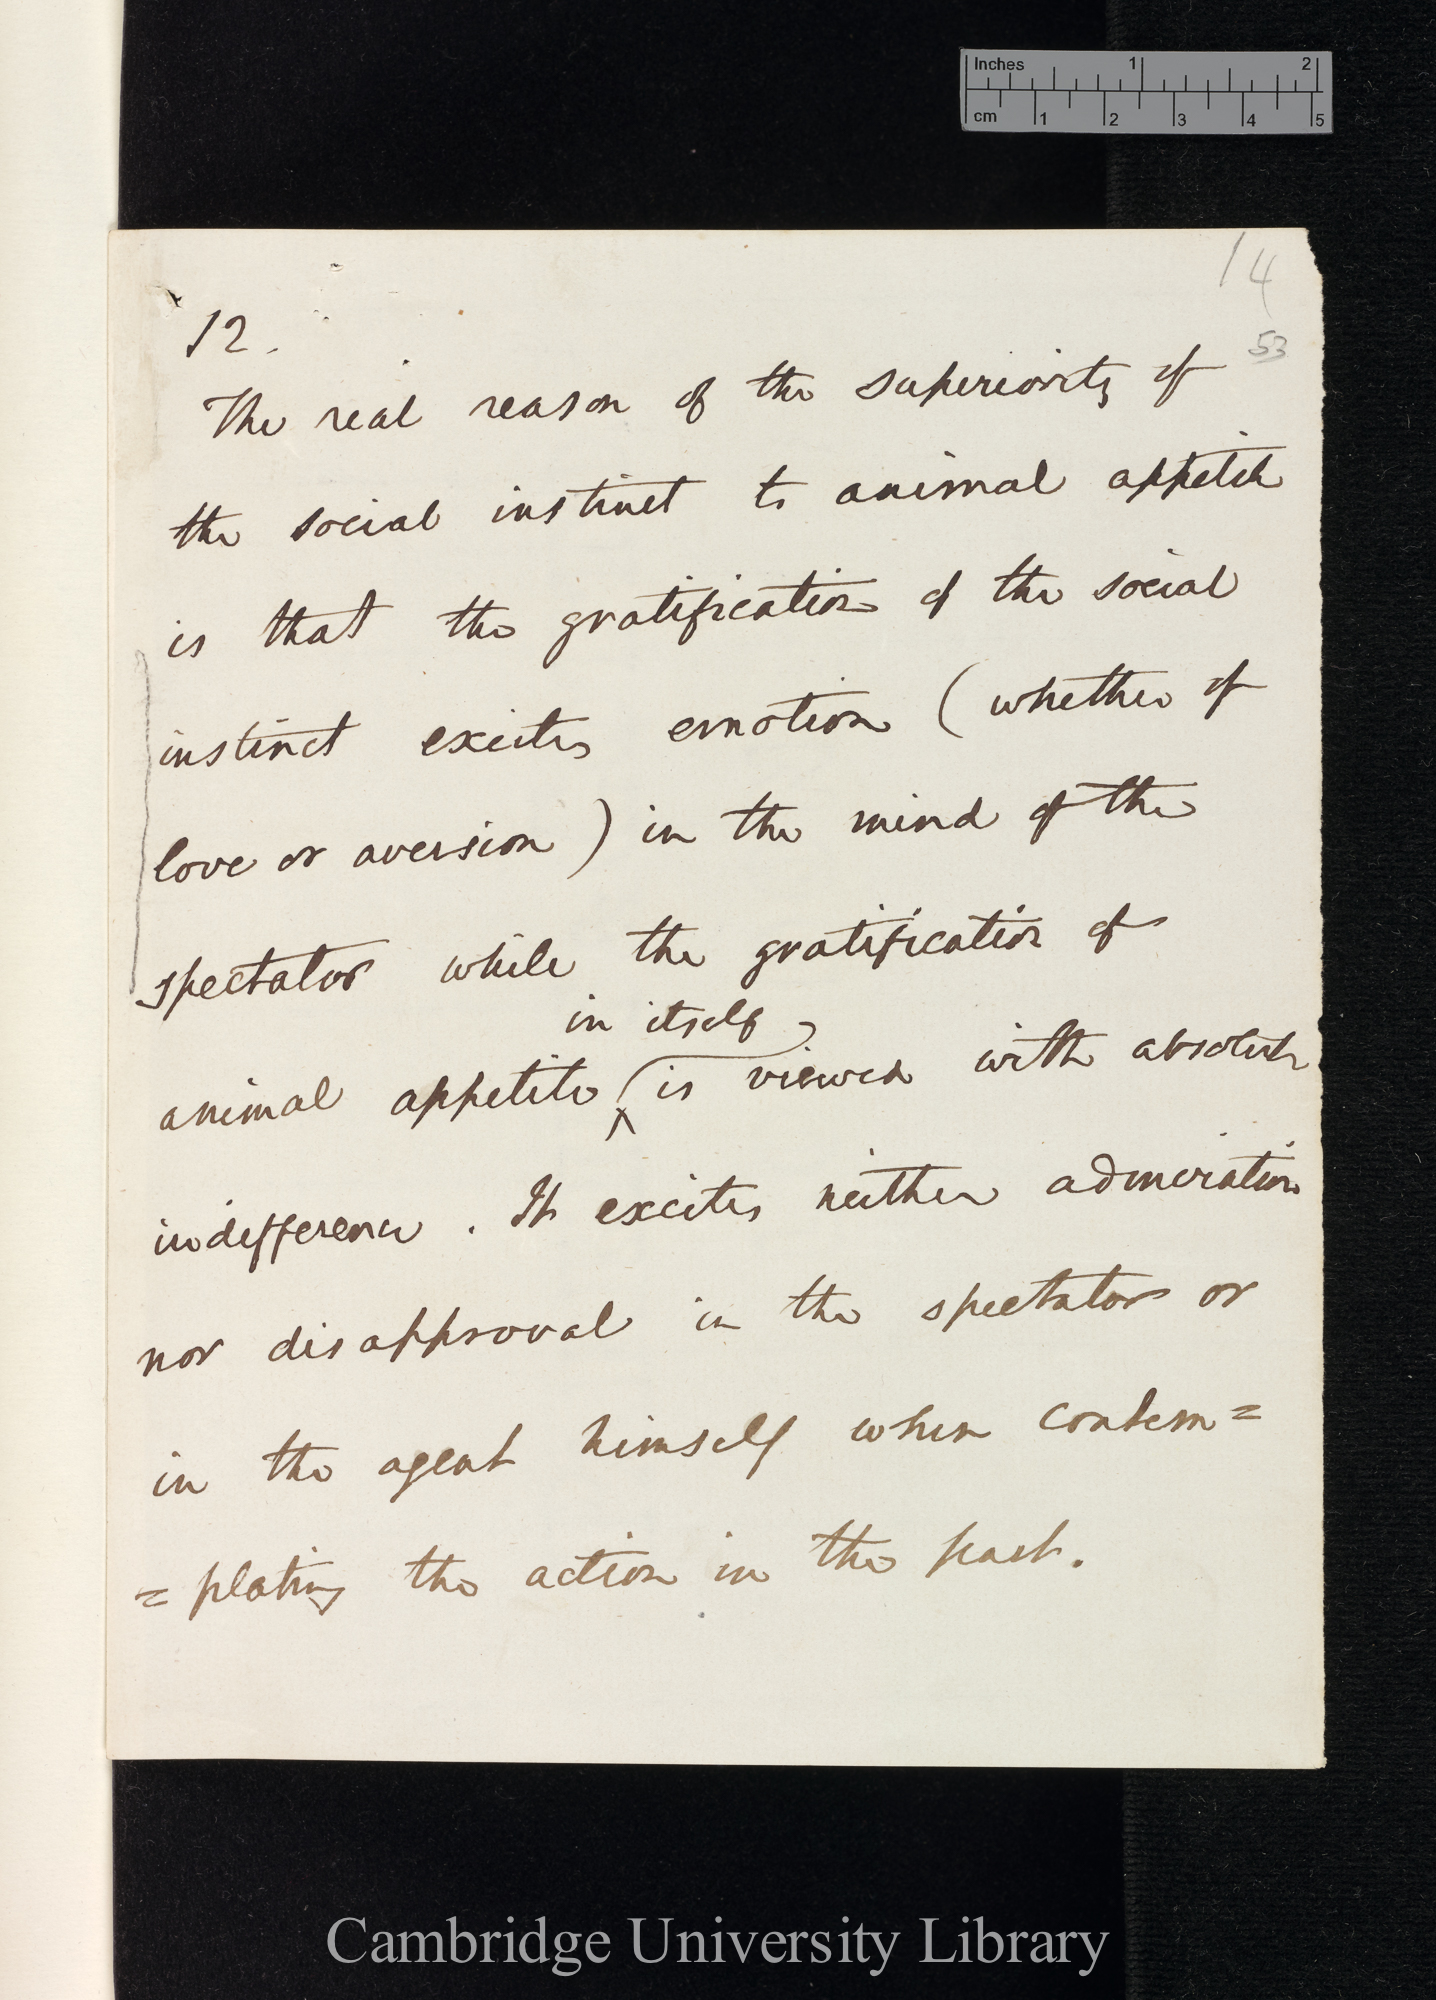 Inches 1 2
cm 1 2 3 4 5
14
53
12.
The real reason of the superiority of
the social instinct to animal appetite
is that the gratification of the social
instinct excites emotion (whether of
love or aversion) in the mind of the
spectator while the gratification of
in itself
animal appetite is viewed with absolute
indifference. It excites neither admiration
nor disapproval in the spectator or
in the agent himself when contem=
=plating the action in the past.
Cambridge University Library